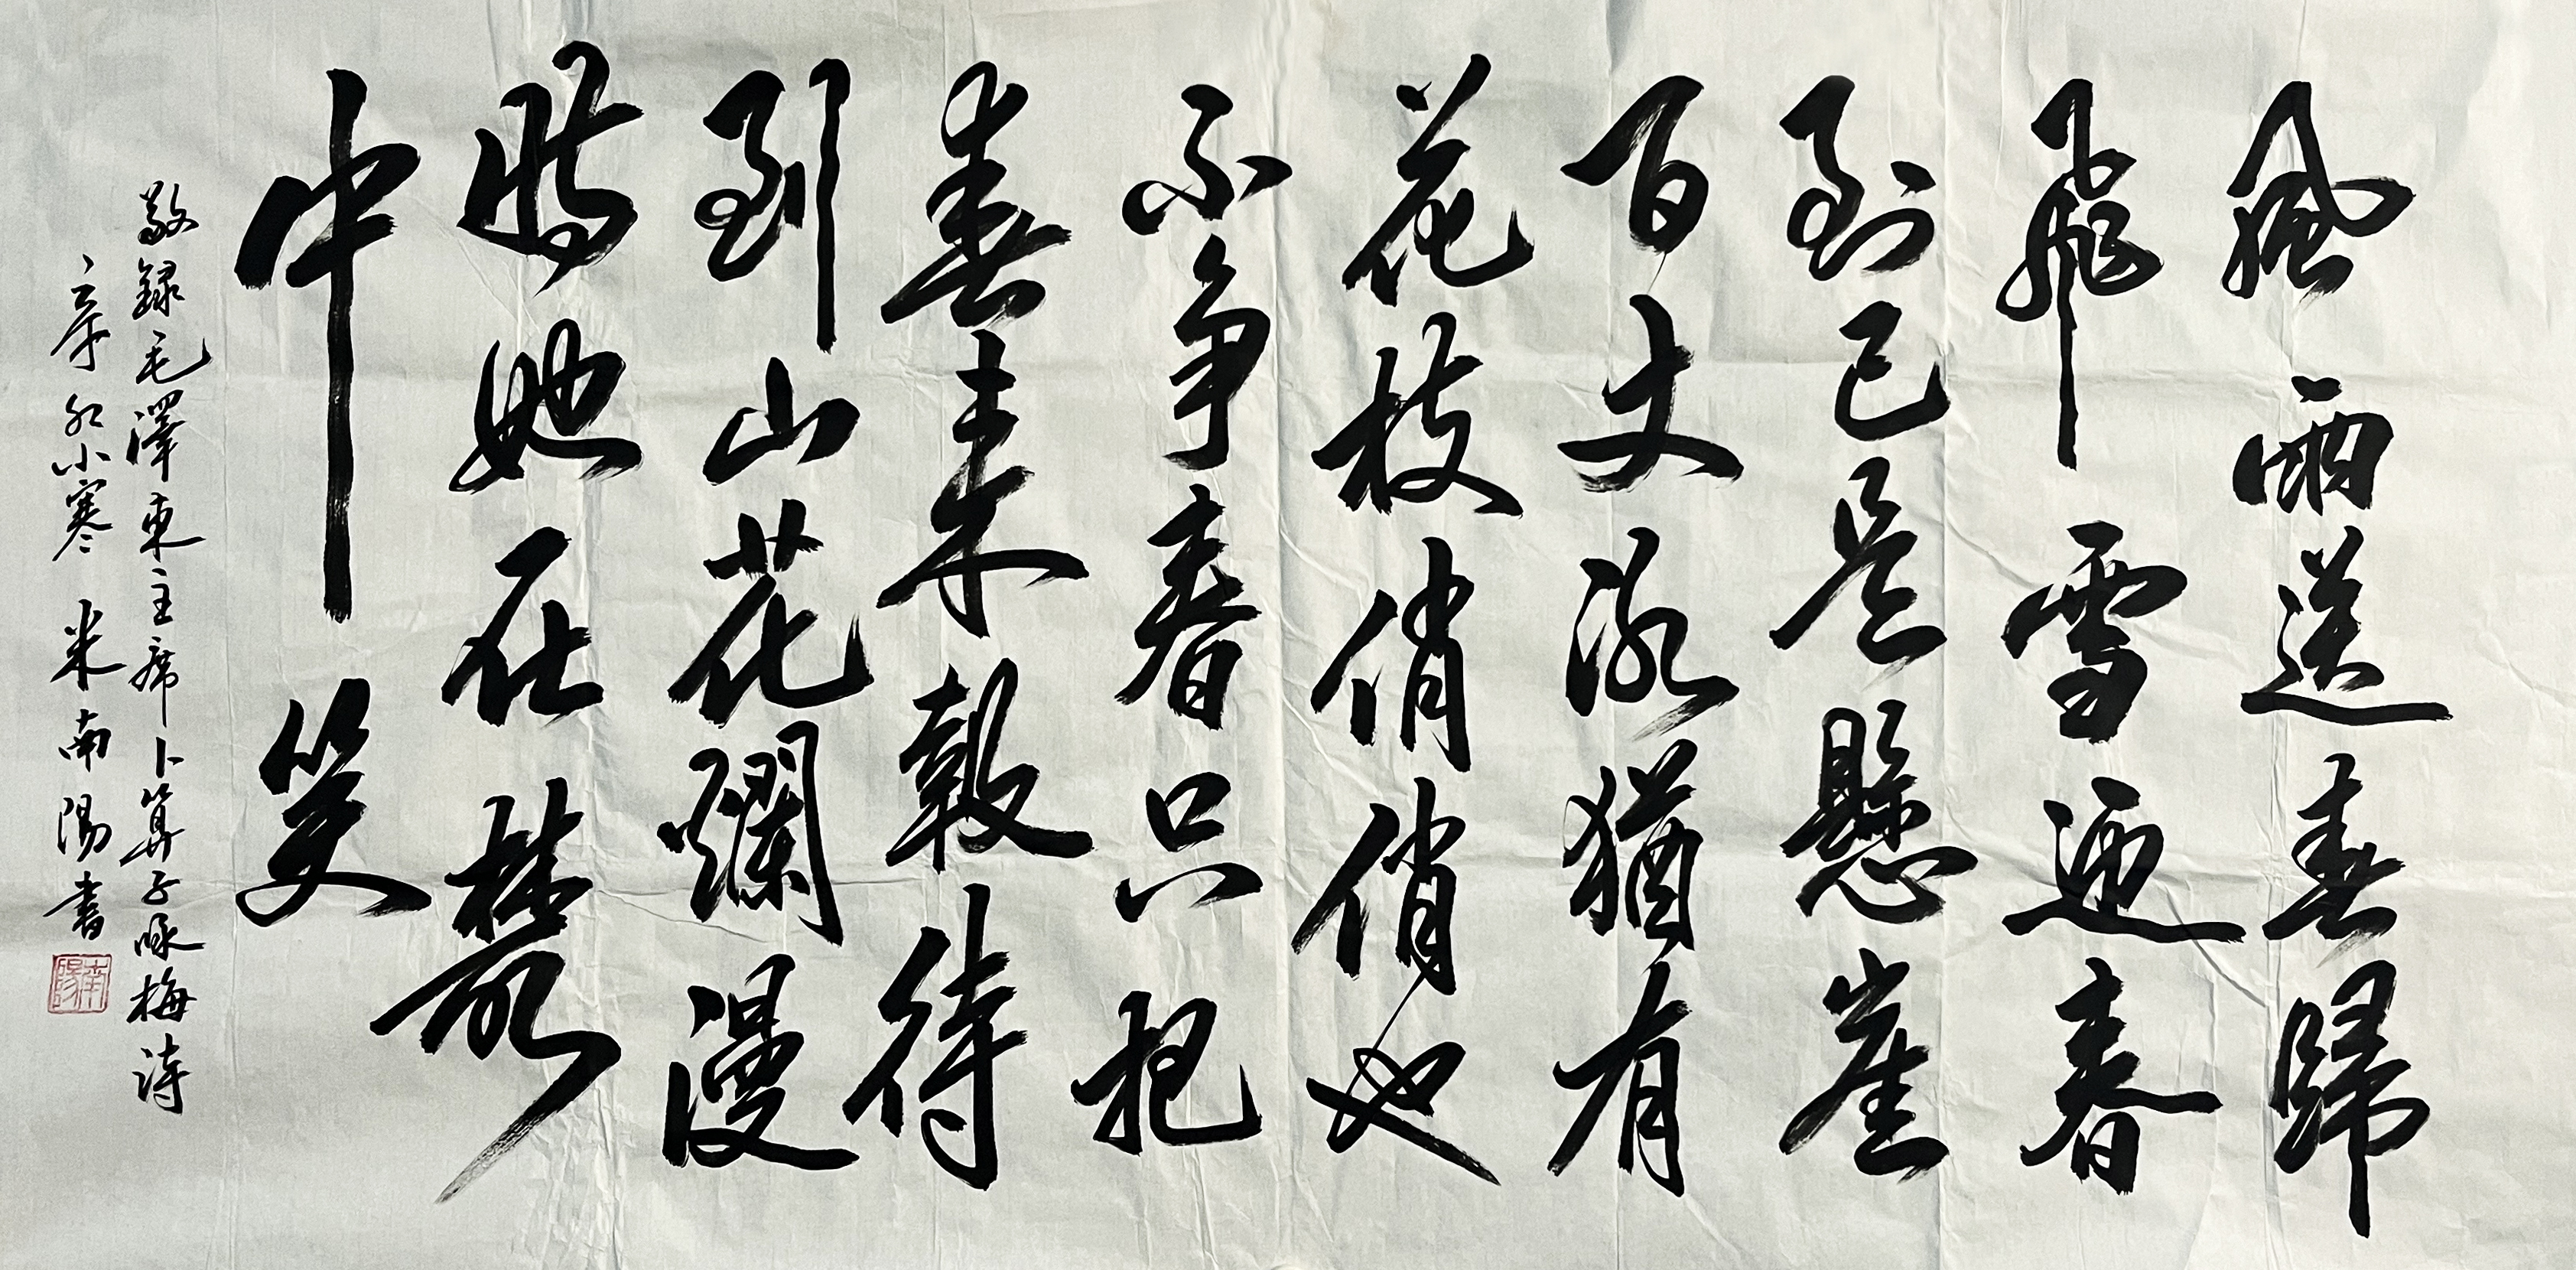 風雨送春歸
飛雪迎春
到已是懸崖
百丈冰猶有
花枝俏俏也
不争春只把
春来報待
到山花爛漫
時她在叢
中笑
敬録毛澤東主席卜算子咏梅詩
辛卯小寒 米南陽書
南陽